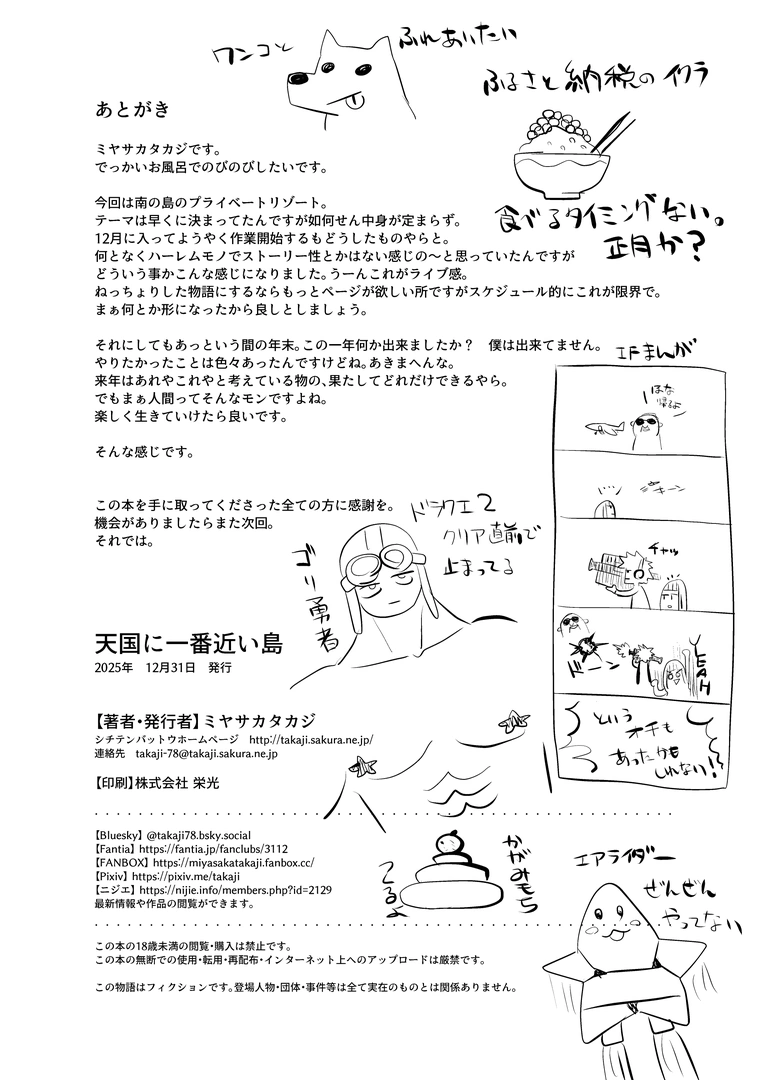 ワンコと
ふれあいたい
ふるさと納税のイクラ
食べるタイミングない。
正月か?
あとがき
ミヤサカタカジです。
でっかいお風呂でのびのびしたいです。
今回は南の島のプライベートリゾート。
テーマは早くに決まってたんですが如何せん中身が定まらず。
12月に入ってようやく作業開始するもどうしたものやらと。
何となくハーレムモノでストーリー性とかはない感じの〜と思っていたんですが
どういう事かこんな感じになりました。うーんこれがライブ感。
ねっちょりした物語にするならもっとページが欲しい所ですがスケジュール的にこれが限界で。
まぁ何とか形になったから良しとしましょう。
それにしてもあっという間の年末。この一年何か出来ましたか?　僕は出来てません。
やりたかったことは色々あったんですけどね。あきまへんな。
来年はあれやこれやと考えている物の、果たしてどれだけできるやら。
でもまぁ人間ってそんなモンですよね。
楽しく生きていけたら良いです。
そんな感じです。
この本を手に取ってくださった全ての方に感謝を。
機会がありましたらまた次回。
それでは。
IFまんが
ほな
帰るよ
キーン
チャッ
ドーン
YEAH
という
オチも
あったかも
しれない!
ドラクエ2
クリア直前で
止まってる
ゴリ勇者
天国に一番近い島
2025年　12月31日　発行
【著者・発行者】ミヤサカタカジ
シチテンバットウホームページ　http://takaji.sakura.ne.jp/
連絡先　takaji-78@takaji.sakura.ne.jp
【印刷】株式会社 栄光
【Bluesky】@takaji78.bsky.social
【Fantia】https://fantia.jp/fanclubs/3112
【FANBOX】https://miyasakatakaji.fanbox.cc/
【Pixiv】https://pixiv.me/takaji
【ニジエ】https://nijie.info/members.php?id=2129
最新情報や作品の閲覧ができます。
かがみもち
てるよ
エアライダー
ぜんぜん
やってない
この本の18歳未満の閲覧・購入は禁止です。
この本の無断での使用・転用・再配布・インターネット上へのアップロードは厳禁です。
この物語はフィクションです。登場人物・団体・事件等は全て実在のものとは関係ありません。